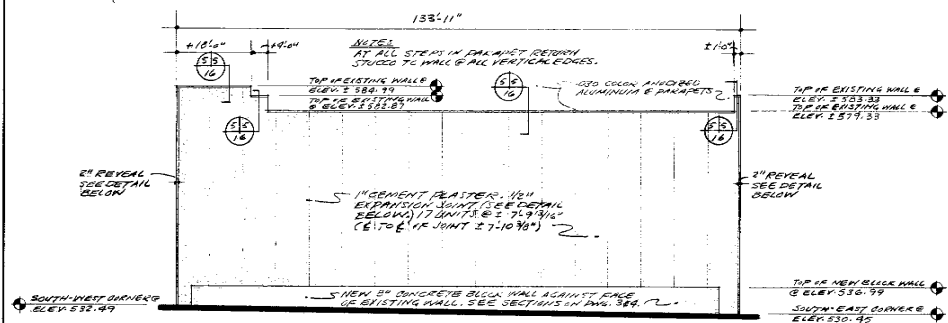 133'-11"
±18'-0"
±4'-0"
±1'-0"
NOTES
AT ALL STEPS IN PARAPET RETURN
STUCCO TO WALL @ ALL VERTICAL EDGES.
5-5
16
TOP OF EXISTING WALL @
ELEV. ± 584.99
TOP OF EXISTING WALL
@ ELEV. ± 582.87
5-5
16
.030 COLOR ANODIZED
ALUMINUM @ PARAPETS
TOP OF EXISTING WALL @
ELEV. ± 583.33
TOP OF EXISTING WALL @
ELEV. ± 579.33
5-5
16
5-5
16
2" REVEAL
SEE DETAIL
BELOW
1" CEMENT PLASTER. 1/2"
EXPANSION JOINT (SEE DETAIL
BELOW.) 17 UNITS @ ± 7'-9 13/16"
(℄ TO ℄ OF JOINT ± 7'-10 3/8")
2" REVEAL
SEE DETAIL
BELOW
NEW 8" CONCRETE BLOCK WALL AGAINST FACE
OF EXISTING WALL. SEE SECTIONS ON DWG. 3&4.
TOP OF NEW BLOCK WALL
@ ELEV. 536.99
SOUTH-WEST CORNER @
ELEV. 532.49
SOUTH-EAST CORNER @
ELEV. 530.45